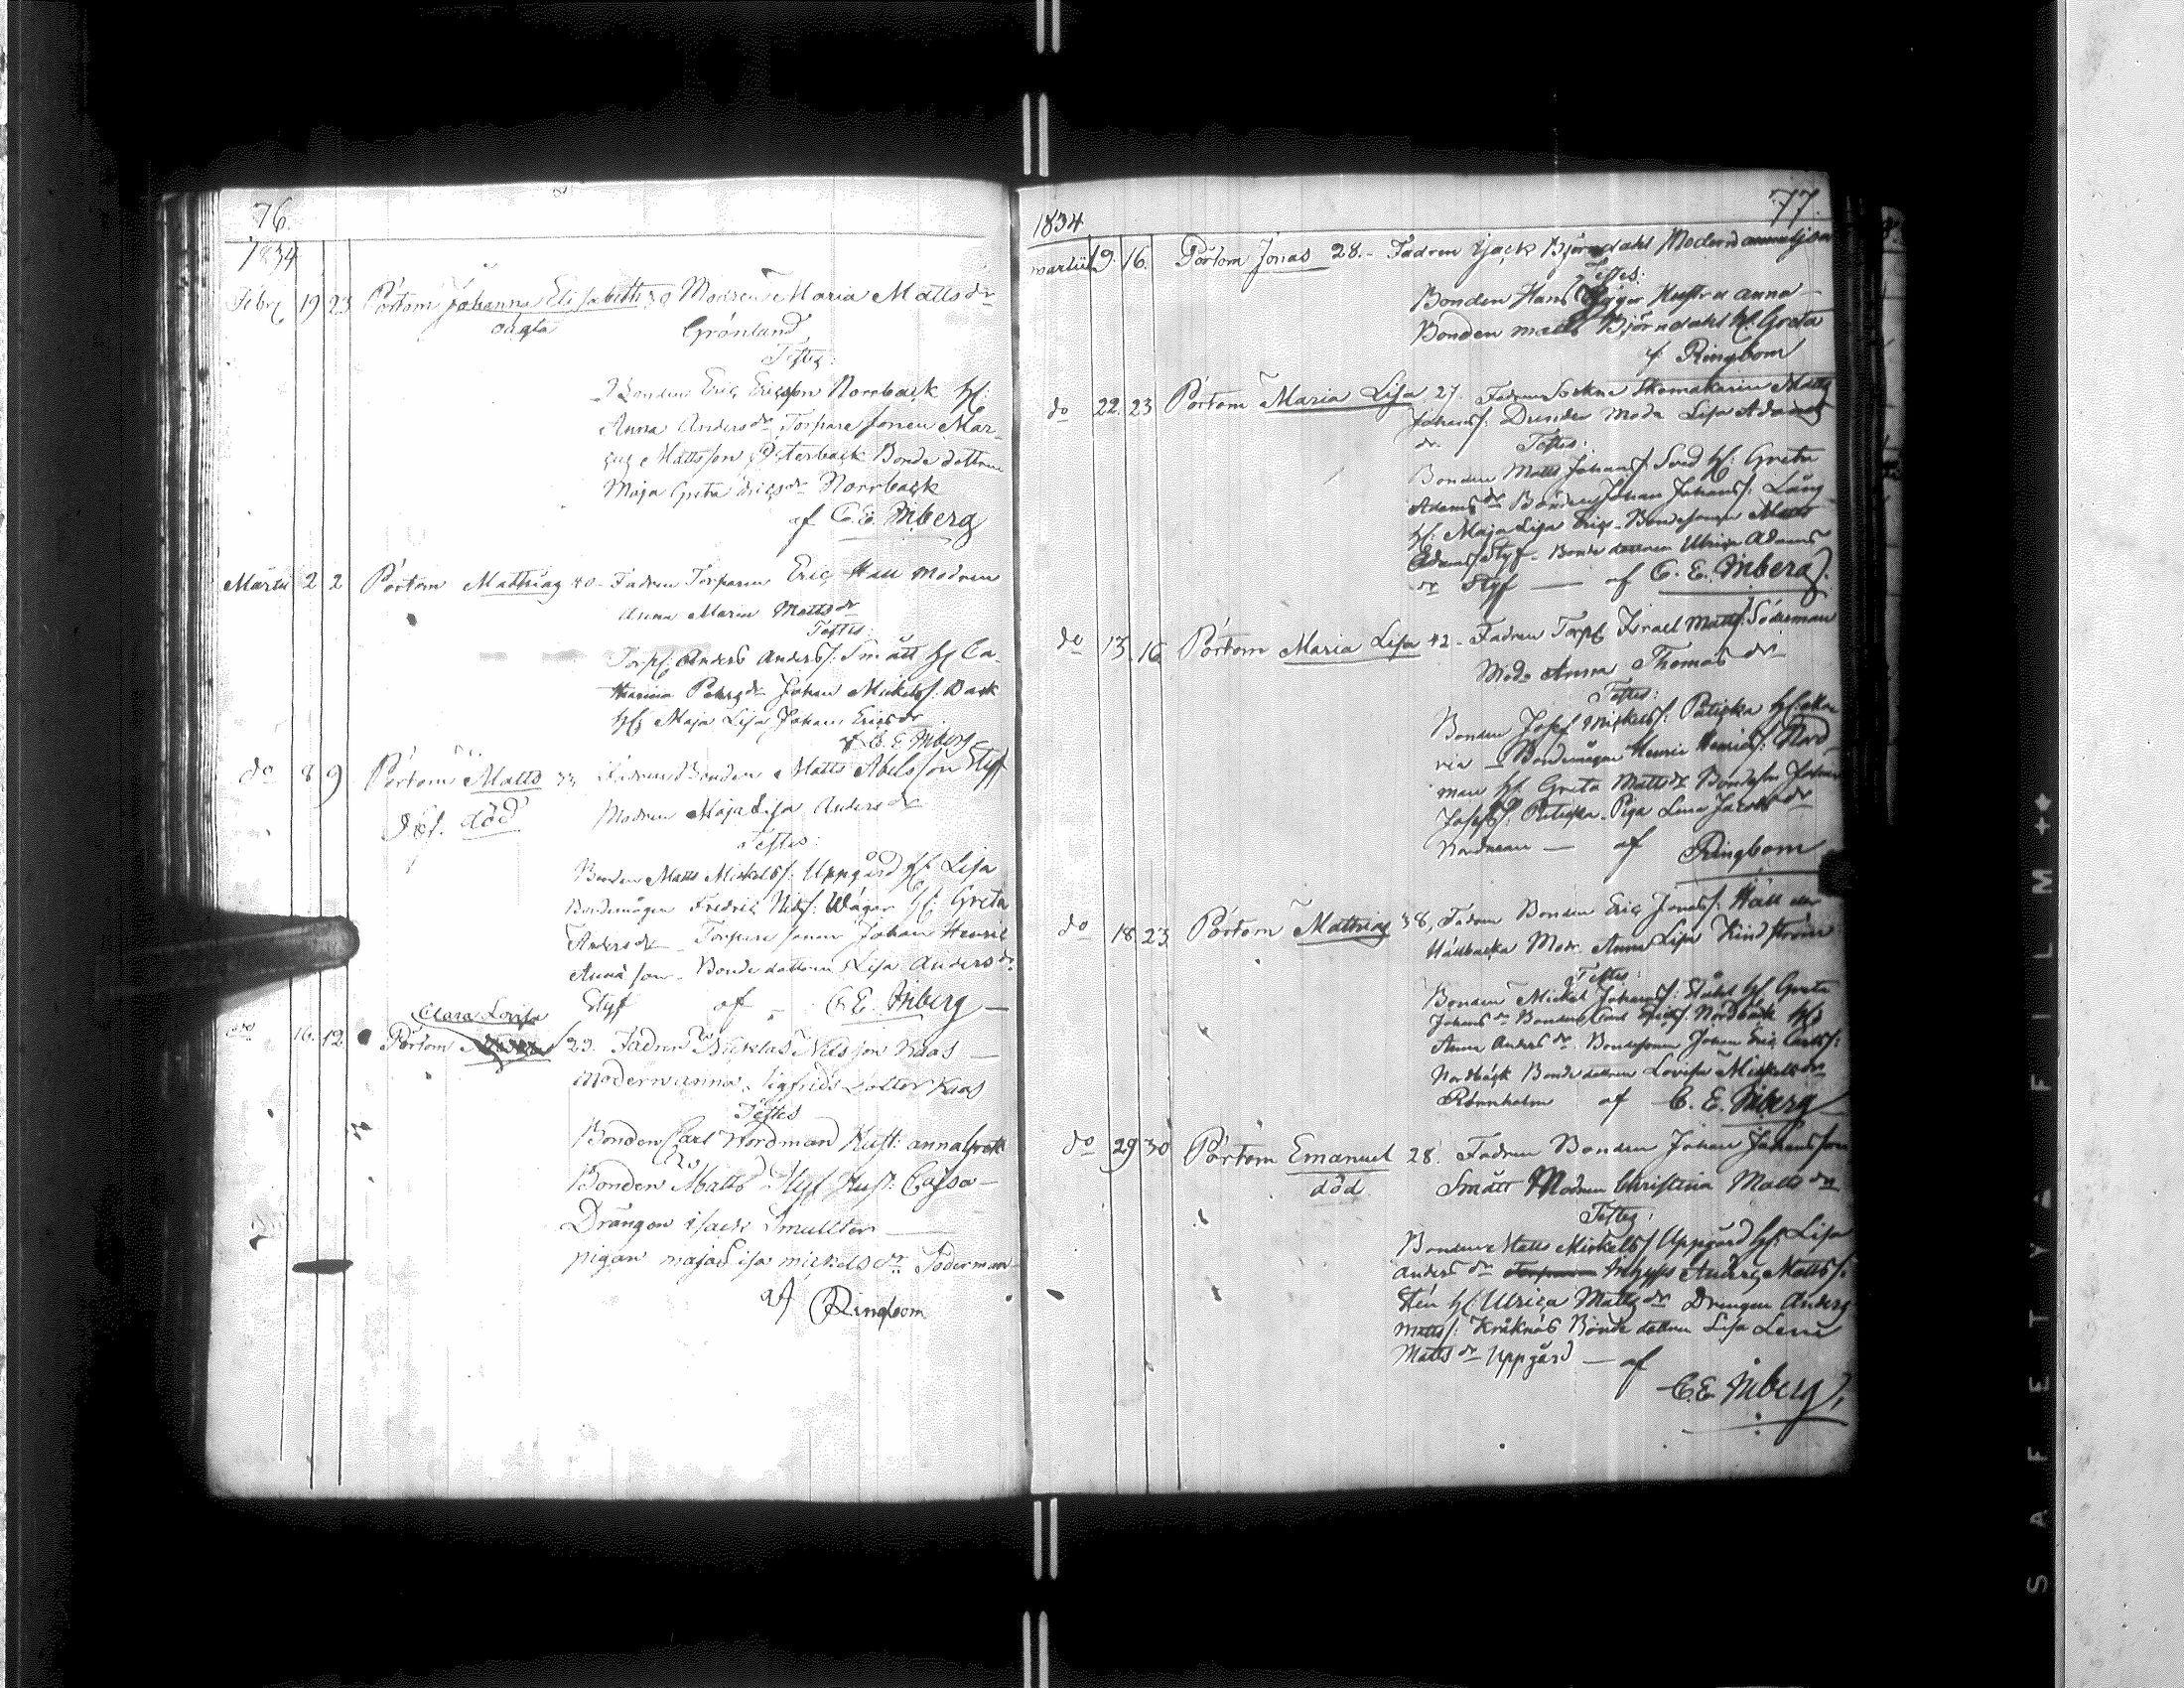 76.
1834
Febr. 19 23 Pörtom Johanna Elisabeth 39 Modren Maria Matts dr
oägta Grönland
Testes:
Bonden Eric Ericsson Norrback H:
Anna Anders dr Torpare sonen Mar-
cus Mattsson Österback Bonde dottren
Maja Greta Erics dr Norrback
af C. E. Inberg
Martii 2 2 Pörtom Mathias 40 - Fadren Torparen Eric Hall Modren
Anna Maria Matts dr
Testes:
Torp. Anders Anderss: Smått H: Ca-
tharina Pehrs dr Johan Mickelss: Back
H: Maja Lisa Johan Erics dr
af C. E. Inberg
do 8 9 Pörtom Matts 33 Fadren Bonden Matts Abelsson Styf
död Modren Maja Lisa Anders dr
Testes:
Bonden Matts Mickelss: Uppgård H: Lisa
Bondemågen Fredric Nilss: Wägar H: Greta
Anders dr Torpare sonen Johan Henric
Bonde dottren Lisa Anders dr
Styf af C. E. Inberg
Clara Lovisa
do 16. 12 Pörtom 23. Fadren Nicklas Nilsson Kaas
Modern anna Sigfrids dotter Kaas
Testes
Bonden Carl Nordman Hust: anna Greta
Bonden Matts Styf Hust: Cajsa
Drängen isack Smulter
pigan maja Lisa mickels dr Söderman
af Ringbom
77.
1834
martii 9. 16. Pörtom Jonas 28. - Fadren isack Björndahl Modern anna Lisa
Testes:
Bonden Hans Hustru anna
Bonden matts Björndahl H: Greta
af Ringbom
do 22. 23 Pörtom Maria Lisa 27. Fadren Sockne Skomakaren Matts
Johanss: Dunder Modr Lisa Adams
dr Testes:
Bonden Matts Johanss: Sund H: Greta
Adams dr Bonden Johan Johanss: Lång
H: Maja Lisa Erics - Bondesonen Matts
Adamss: Styf - Bonde dottren Ulrica Adams
dr Styf af C. E. Inberg.
do 13. 16 Pörtom Maria Lisa 42 - Fadren Torp. Israel Matts: Söderman
Mod: Anna Thomas dr
Testes:
Bonden Josef Mickelss: H: Ma-
ria - Bondemågen Henric Henricss: Nord-
man H: Greta Matts dr Bondeson Johan
Josefss: Piga Lena Jacobs dr
Nordman af Ringbom
do 18 23 Pörtom Mathias 38, Fadren Bonden Eric Jonass: Håll
Hållbacka Modr. Anna Lisa Kindström
Testes:
Bonden Mickel Johanss: Ståhl H: Greta
Johans dr Bonden Carl Ericss: Nordbäck H:
Anna Anders dr. Bondesonen Johan Eric Carlss:
Nordbäck Bonde dottren Lovisa Mickels dr
Rönnholm af C. E. Inberg
do 29 30 Pörtom Emanuel 28. Fadren Bonden Johan Johansson
död Smått Modren Christina Matts dr
Testes:
Bonden Matts Mickelss: Uppgård H: Lisa
Anders dr Inhyses Anders Matts:
Sten H: Ulrica Matts dr Drengen Anders
Matts: Kråknäs Bonde dottren Lisa Lena
Matts dr Uppgård af
C. E. Inberg.
SAFETY FILM